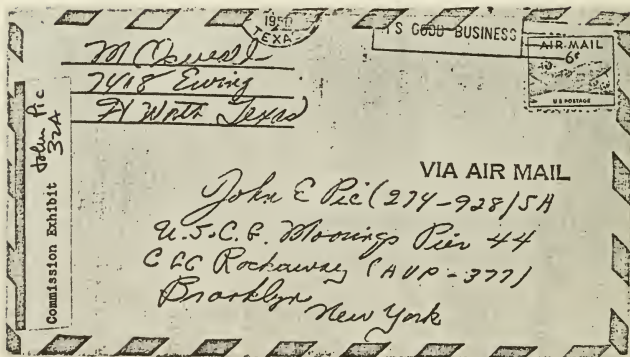 1950
TEXAS
'S GOOD BUSINESS
AIR MAIL
6¢
U S POSTAGE
M C Oswald
7418 Ewing
Ft Worth Texas
John Pic
32A
Commission Exhibit
VIA AIR MAIL
John E Pic (274-928) SA
U.S.C.G. Moorings Pier 44
CGC Rockaway (AVP-377)
Brooklyn
New York